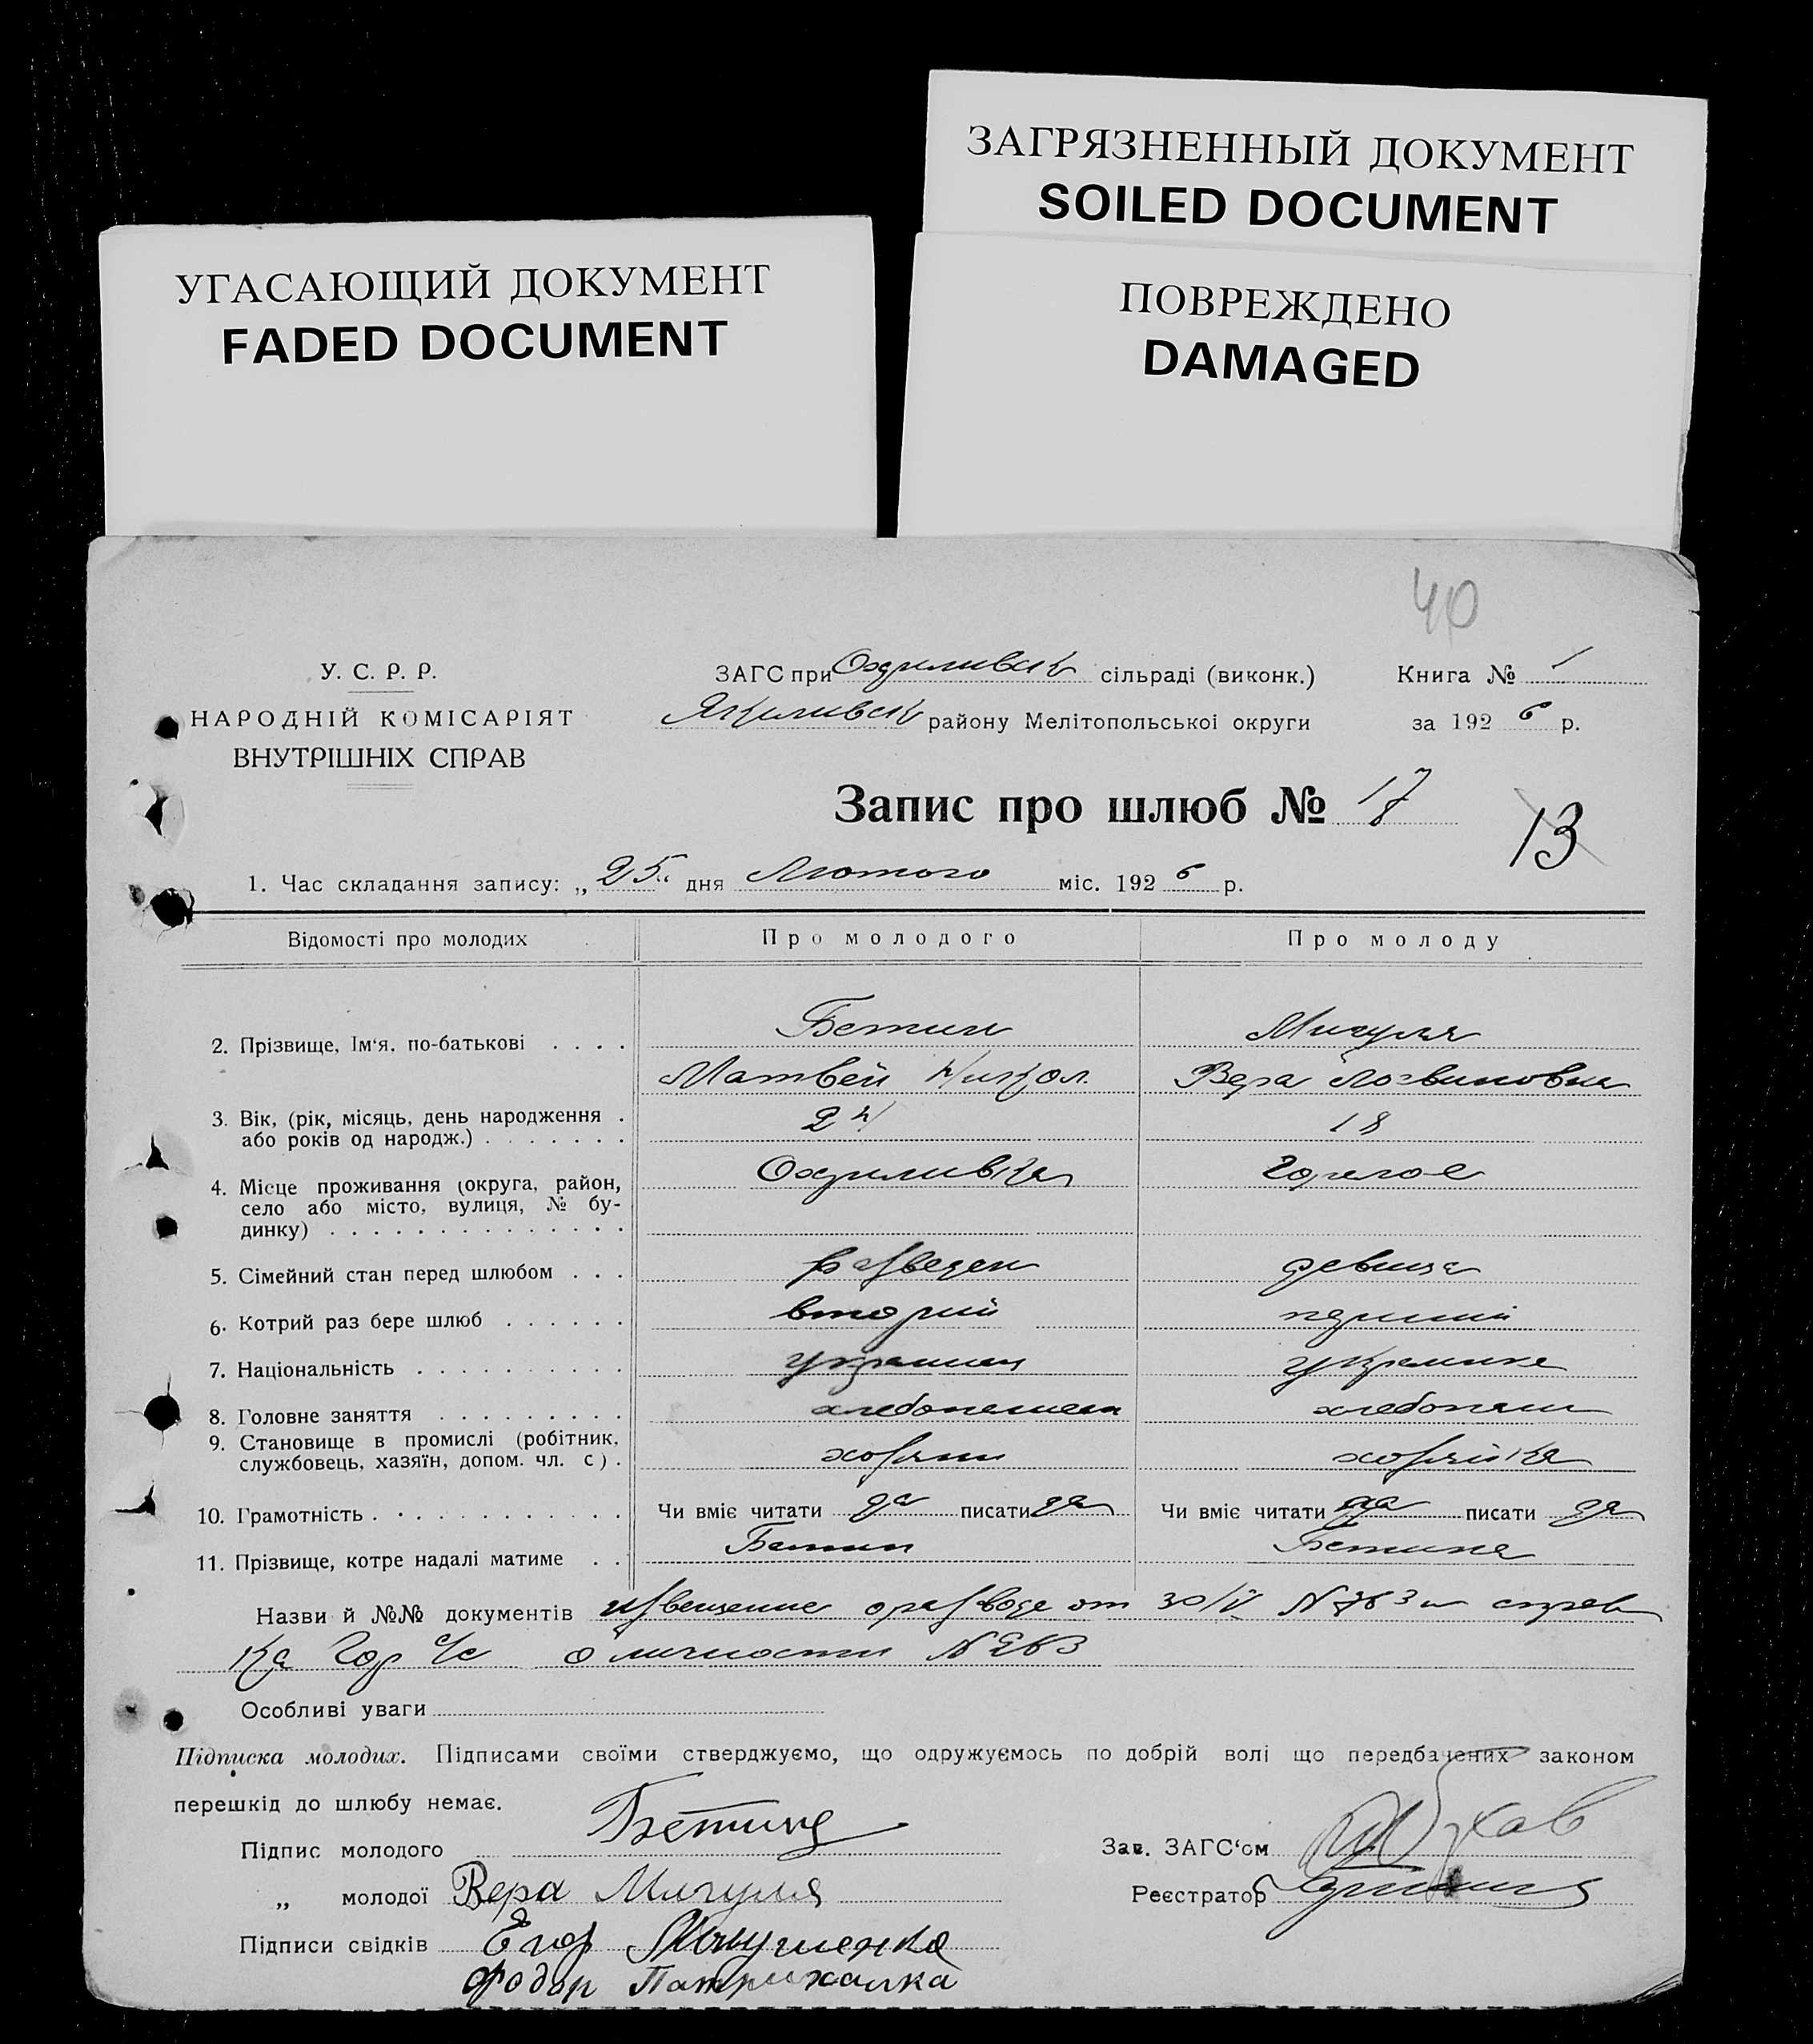 ЗАГРЯЗНЕННЫЙ ДОКУМЕНТ
SOILED DOCUMENT
УГАСАЮЩИЙ ДОКУМЕНТ
FADED DOCUMENT
ПОВРЕЖДЕНО
DAMAGED
40
У. С. Р. Р.
НАРОДНІЙ КОМІСАРІЯТ
ВНУТРІШНІХ СПРАВ
ЗАГС при Охримивск сільраді (виконк.) Книга № 1
Якимивск району Мелітопольськоі округи за 1926 р.
Запис про шлюб № 17
13
1. Час складання запису: „25" дня Лютого міс. 1926 р.
Відомості про молодих Про молодого Про молоду
2. Прізвище, Ім'я. по-батькові . . . . Бетин Мигуля
Матвей Никол. Вера Логвиновна
3. Вік, (рік, місяць, день народження . 24 18
або років од народж.) . . . . . . .
4. Місце проживання (округа, район, Охримивка Горелое
село або місто, вулиця, № бу-
динку) . . . . . . . . . . . . . .
5. Сімейний стан перед шлюбом . . . разведен девица
6. Котрий раз бере шлюб . . . . . . вторий первий
7. Національність . . . . . . . . . . украинец украинка
8. Головне заняття . . . . . . . . . хлебопашец хлебопаш
9. Становище в промислі (робітник, хозяин хозяйка
службовець, хазяїн, допом. чл. с) .
10. Грамотність . . . . . . . . . . . Чи вміє читати да писати да Чи вміє читати да писати да
11. Прізвище, котре надалі матиме . . Бетин Бетина
Назви й №№ документів извещение о разводе от 30/V и справ
ка Гор с/с о личности
Особливі уваги
Підписка молодих. Підписами своїми стверджуємо, що одружуємось по добрій волі що передбачених законом
перешкід до шлюбу немає.
Підпис молодого Бетин Зав. ЗАГС'ом
„ молодої Вера Мигуля Реєстратор
Підписи свідків Егор
Федір